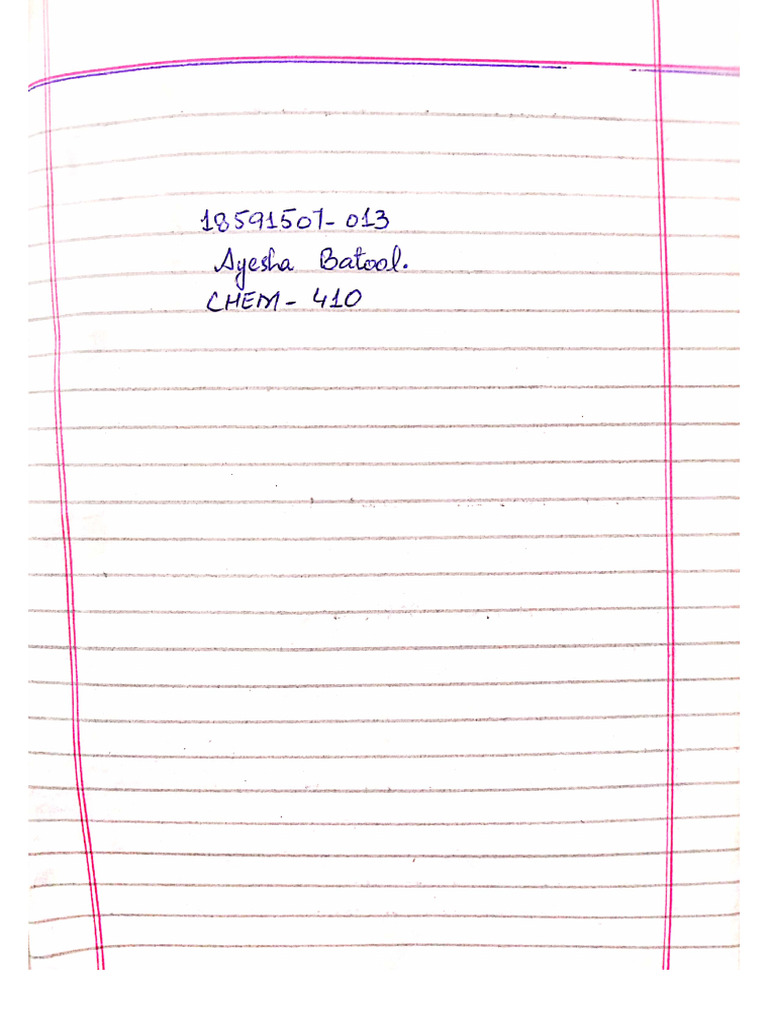 18591507-013
Ayesha Batool.
CHEM- 410